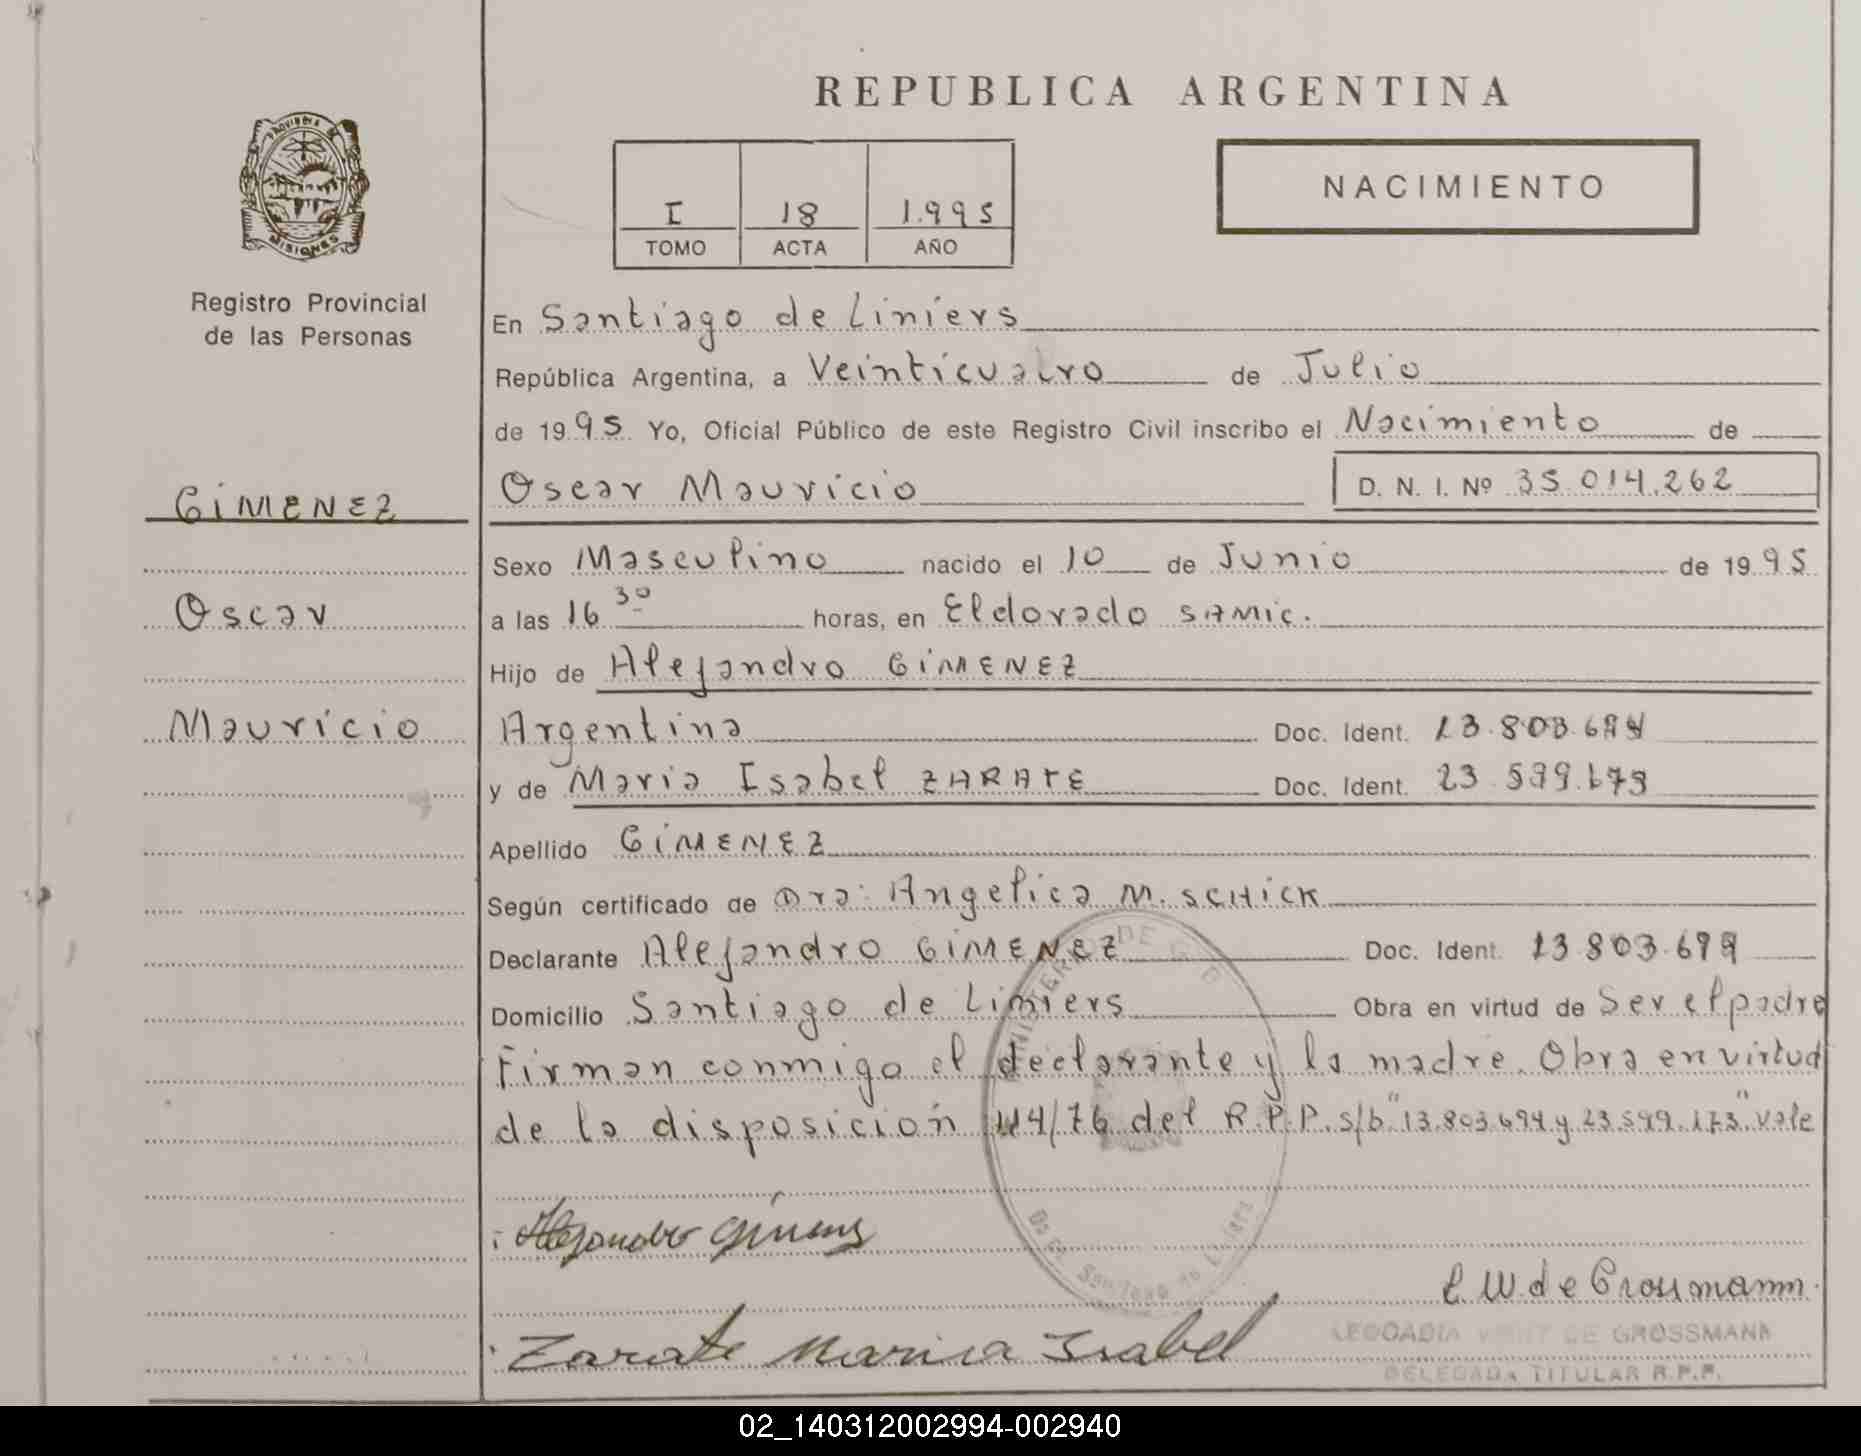 PROVINCIA DE
MISIONES
Registro Provincial
de las Personas
GIMENEZ
Oscar
Mauricio
REPUBLICA ARGENTINA
I 18 1.995
TOMO ACTA AÑO
NACIMIENTO
En Santiago de Liniers
República Argentina, a Veinticuatro de Julio
de 1995 Yo, Oficial Público de este Registro Civil inscribo el Nacimiento de
Oscar Mauricio D. N. I. Nº 35.014.262
Sexo Masculino nacido el 10 de Junio de 1995
a las 16 30 horas, en Eldorado SAMIC.
Hijo de Alejandro GIMENEZ
Argentina Doc. Ident. 13.803.694
y de Maria Isabel ZARATE Doc. Ident. 23.599.173
Apellido GIMENEZ
Según certificado de Dra: Angelica M. SCHICK
Declarante Alejandro GIMENEZ Doc. Ident. 13.803.694
Domicilio Santiago de Liniers Obra en virtud de Ser el padre
Firman conmigo el declarante y la madre. Obra en virtud
de la disposición 44/76 del R.P.P. s/b "13.803.694 y 23.599.173" vale
Alejandro Gimenez
MINISTERIO DE GOB
Santiago de Liniers
L W de Grossmann
Zarate Maria Isabel
LEOCADIA DE GROSSMANN
DELEGADA TITULAR R.P.P.
02_140312002994-002940